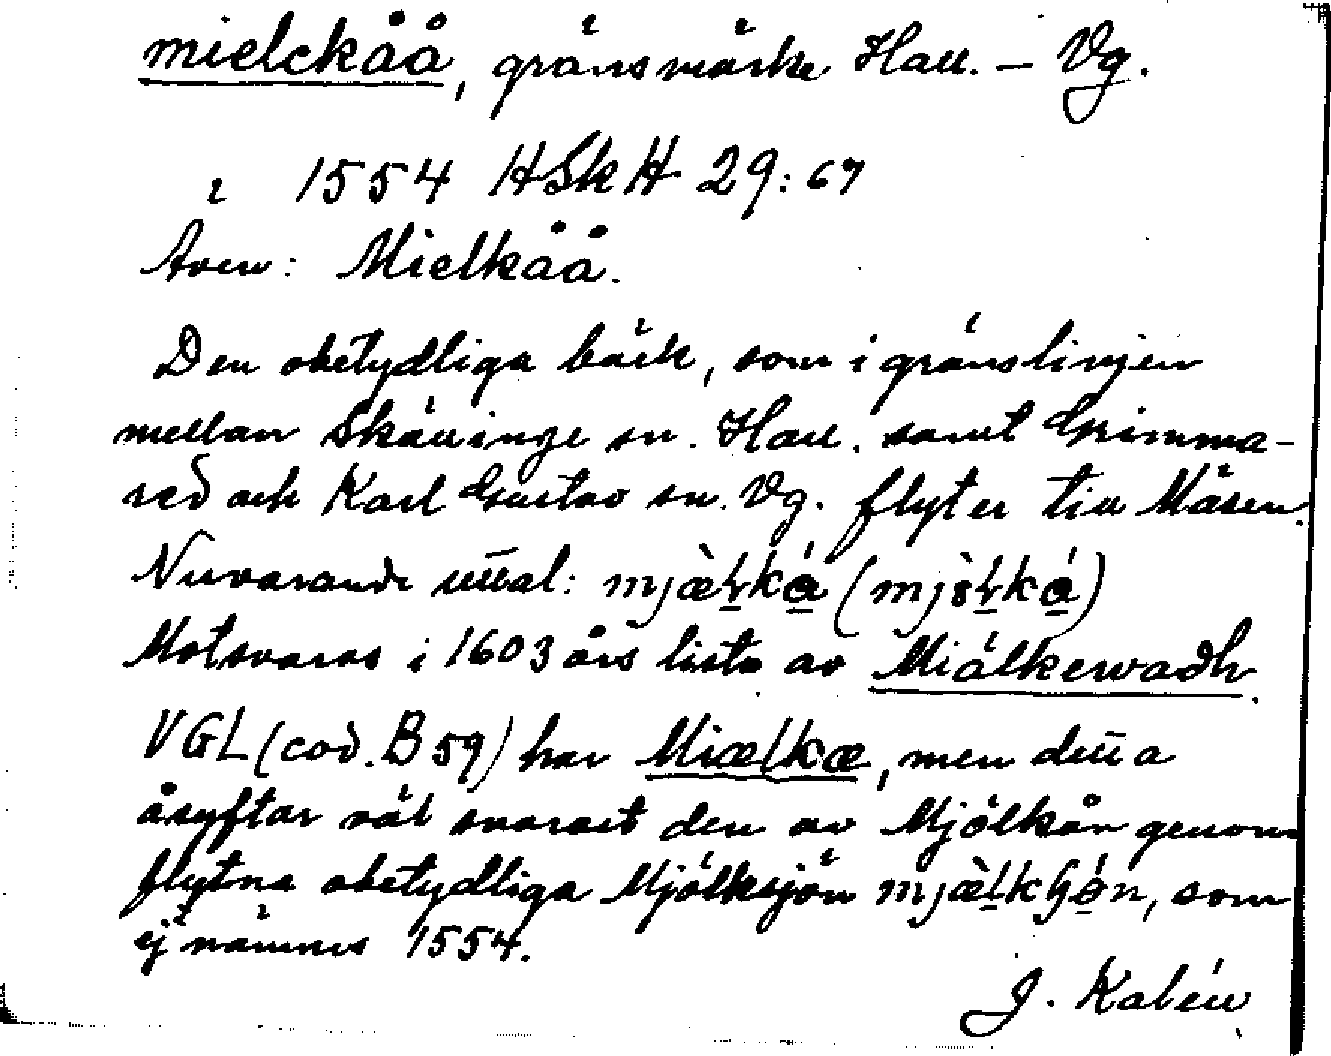 mielckåå, gränsmärke Hall. – Vg.
i 1554 HSkH 29:67
Även: Mielkåå.
Den obetydliga bäck, som i gränslinjen
mellan Skällinge sn. Hall. samt Grimma-
red och Karl Gustav sn. Vg. flyter till Mäsen.
Nuvarande uttal:
Motsvaras i 1603 års lista av Miälkewadh.
VGL (cod. B 59) har Miælkæ, men detta
åsyftar väl snarast den av Mjölkån genom-
flytna obetydliga Mjölksjön som
ej nämnes 1554.
J. Kalén